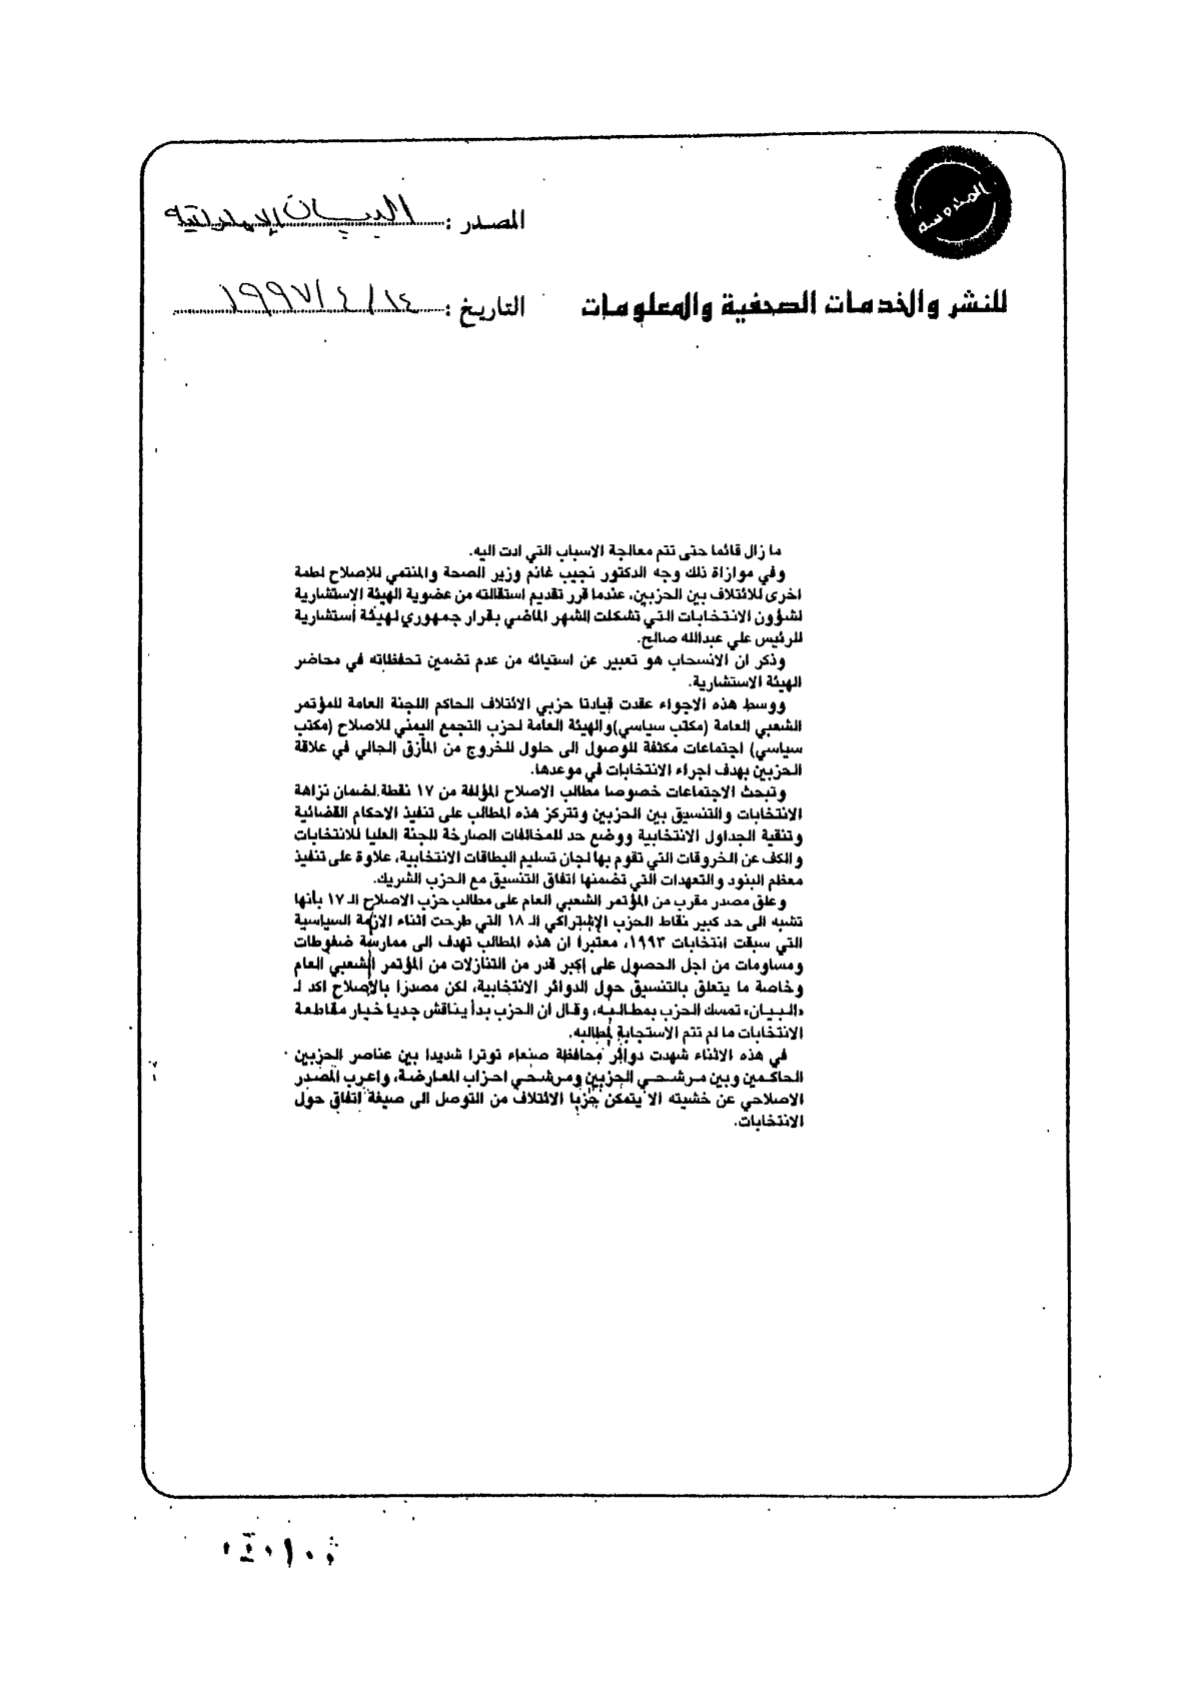 المصدر : البيان الإماراتية
للنشر والخدمات الصحفية والمعلومات
التاريخ : ١٤ / ٤ / ١٩٩٧
ما زال قائما حتى تتم معالجة الاسباب التي ادت اليه.
وفي موازاة ذلك وجه الدكتور نجيب غانم وزير الصحة والمنتمي للإصلاح لطمة
اخرى للائتلاف بين الحزبين، عندما قرر تقديم استقالته من عضوية الهيئة الإستشارية
لشؤون الانتخابات التي تشكلت الشهر الماضي بقرار جمهوري لهيئة أستشارية
للرئيس علي عبدالله صالح.
وذكر ان الانسحاب هو تعبير عن استيائه من عدم تضمين تحفظاته في محاضر
الهيئة الاستشارية.
ووسط هذه الاجواء عقدت قيادتا حزبي الائتلاف الحاكم اللجنة العامة للمؤتمر
الشعبي العامة (مكتب سياسي)والهيئة العامة لحزب التجمع اليمني للاصلاح (مكتب
سياسي) اجتماعات مكثفة للوصول الى حلول للخروج من المأزق الحالي في علاقة
الحزبين بهدف اجراء الانتخابات في موعدها.
وتبحث الاجتماعات خصوصا مطالب الاصلاح المؤلفة من ١٧ نقطة لضمان نزاهة
الانتخابات والتنسيق بين الحزبين وتتركز هذه المطالب على تنفيذ الاحكام القضائية
وتنقية الجداول الانتخابية ووضع حد للمخالفات الصارخة للجنة العليا للانتخابات
والكف عن الخروقات التي تقوم بها لجان تسليم البطاقات الانتخابية، علاوة على تنفيذ
معظم البنود والتعهدات التي تضمنها اتفاق التنسيق مع الحزب الشريك.
وعلق مصدر مقرب من المؤتمر الشعبي العام على مطالب حزب الاصلاح الـ ١٧ بأنها
تشبه الى حد كبير نقاط الحزب الإشتراكي الـ ١٨ التي طرحت اثناء الازمة السياسية
التي سبقت انتخابات ١٩٩٣، معتبرا ان هذه المطالب تهدف الى ممارسة ضغوطات
ومساومات من اجل الحصول على اكبر قدر من التنازلات من المؤتمر الشعبي العام
وخاصة ما يتعلق بالتنسيق حول الدوائر الانتخابية، لكن مصدرا بالاصلاح اكد لـ
«البيان» تمسك الحزب بمطالبه، وقال ان الحزب بدأ يناقش جديا خيار مقاطعة
الانتخابات ما لم تتم الاستجابة لمطالبه.
في هذه الاثناء شهدت دوائر محافظة صنعاء توترا شديدا بين عناصر الحزبين
الحاكمين وبين مرشحي الحزبين ومرشحي احزاب المعارضة، واعرب المصدر
الاصلاحي عن خشيته الا يتمكن حزبا الائتلاف من التوصل الى صيغة اتفاق حول
الانتخابات.